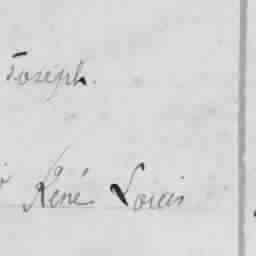 Joseph.
René Louis